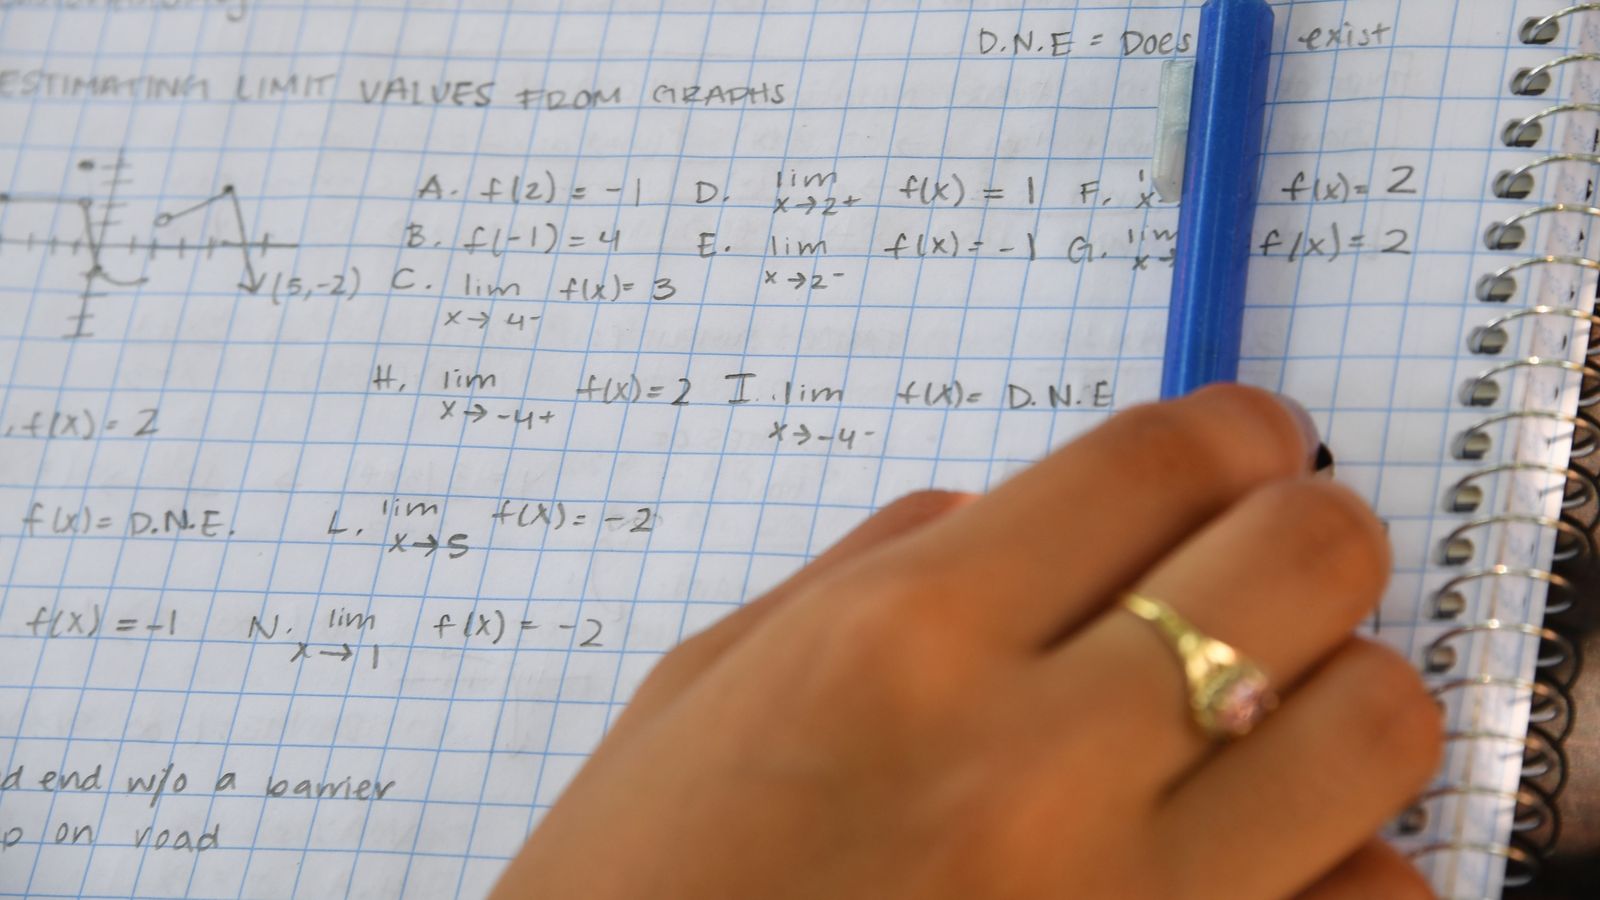 D.N.E = Does exist
ESTIMATING LIMIT VALUES FROM GRAPHS
A. f(2) = -1 D. lim x→2+ f(x) = 1 F. x- f(x)= 2
B. f(-1) = 4 E. lim x→2- f(x) = -1 G. lim x→ f(x) = 2
(5,-2) C. lim x→4- f(x)= 3
H. lim x→-4+ f(x) = 2 I. lim x→-4- f(x)= D.N.E
f(x) = 2
f(x) = D.N.E. L. lim x→5 f(x) = -2
f(x) = -1 N. lim x→1 f(x) = -2
d end w/o a barrier
on road